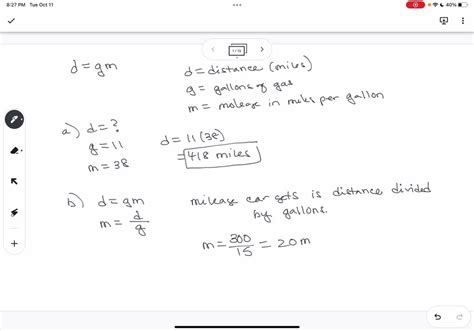 8:27 PM Tue Oct 11
40%
d = gm
d = distance (miles)
g = gallons of gas
m = moleage in miles per gallon
a) d = ?
g = 11
m = 38
d = 11(38)
= 418 miles
b) d = gm
m = d/g
mileage car gets is distance divided
by gallons.
m = 300/15 = 20m